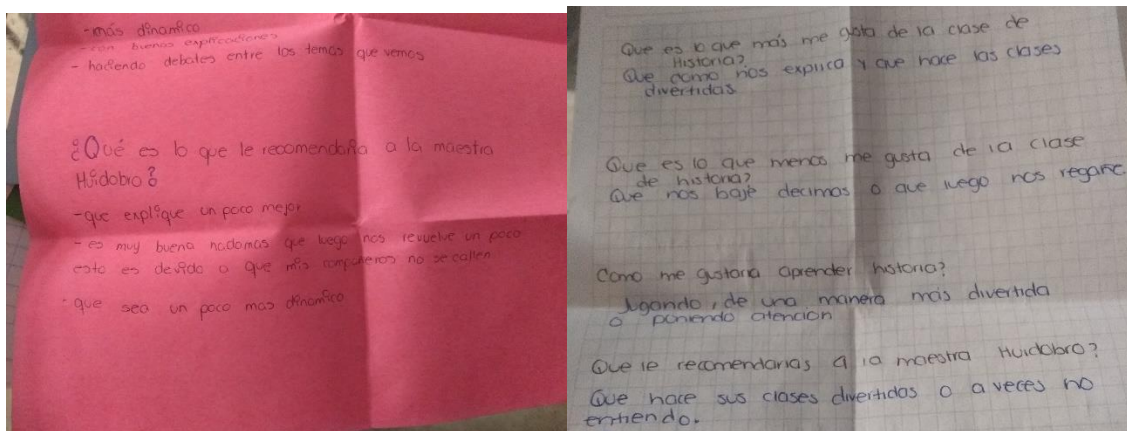 -más dinamico
- con buenas explicaciones
- haciendo debates entre los temas que vemos
¿Qué es lo que le recomendaria a la maestra
Huidobro?
-que explique un poco mejor
- es muy buena nadamas que luego nos revuelve un poco
esto es devido a que mis compañeros no se callen
- que sea un poco mas dinamico
Que es lo que más me gusta de la clase de
Historia?
Que como nos explica y que hace las clases
divertidas
Que es lo que menos me gusta de la clase
de historia?
Que nos baje decimas o que luego nos regañe
Como me gustaria aprender historia?
Jugando, de una manera mas divertida
o poniendo atencion
Que le recomendarias a la maestra Huidobro?
Que hace sus clases divertidas o a veces no
entiendo.